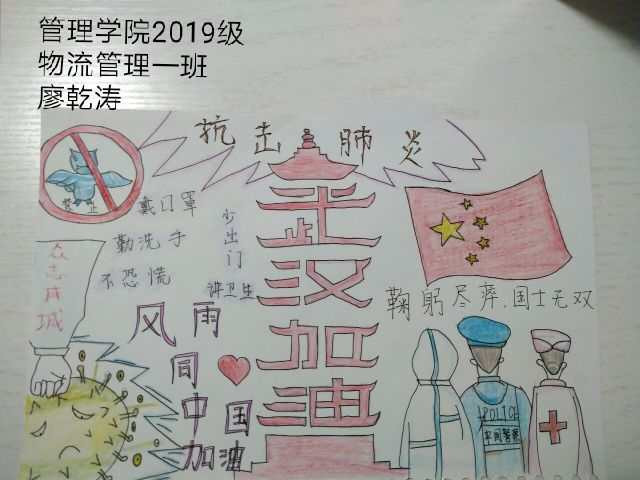 管理学院2019级
物流管理一班
廖乾涛
抗击肺炎
禁止
戴口罩
勤洗手
不恐慌
少出门
讲卫生
众志成城
武汉加油
鞠躬尽瘁.国士无双
风雨
同
中国
加油
POLICE
中国警察